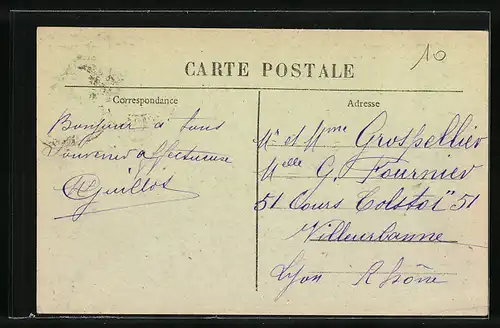 10
CARTE POSTALE
Correspondance
Adresse
Bonjour à tous
Souvenir affectueux
Guillot
Mr et Mme Grospellier
Melle G. Fournier
51 Cours Tolstoï 51
Villeurbanne
Lyon Rhône